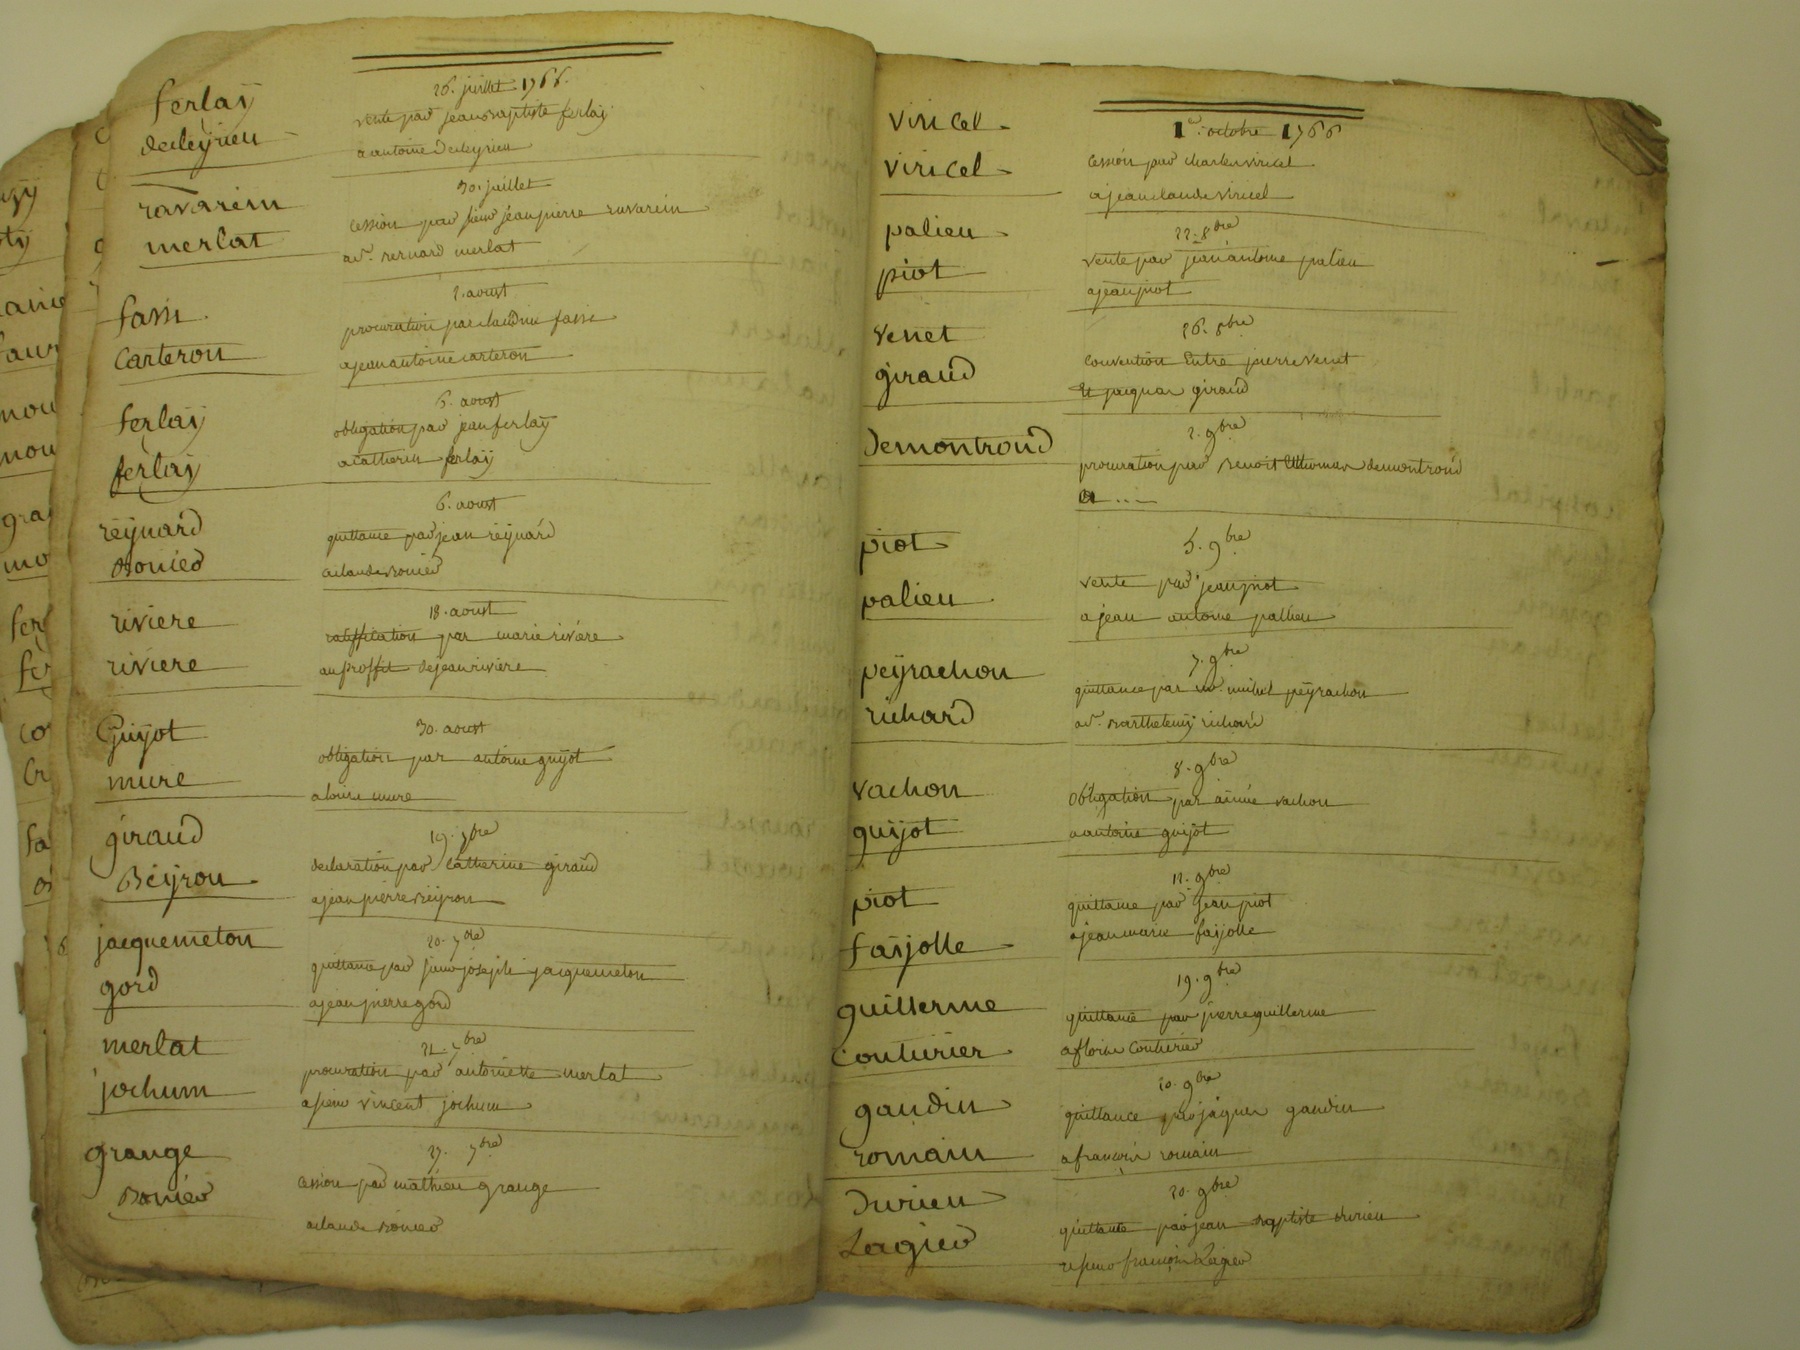 ferlaÿ
decleyrieu
26. juillet 1766.
vente par jean baptiste ferlaÿ
a antoine decleyrieu
ravarein
merlat
30. juillet
cession par sieur jean pierre ravarein
a sr. bernard merlat
fassi
carteron
2. aoust
procuration par claudine fassi
a jean antoine carteron
ferlaÿ
ferlaÿ
6. aoust
obligation par jean ferlaÿ
a catherin ferlaÿ
reÿnard
bonier
6. aoust
quittance par jean reÿnard
a claude bonier
riviere
riviere
18. aoust
ratiffication par marie riviere
au proffit de jean riviere
Guÿot
mure
30. aoust
obligation par antoine guÿot
a mure
giraud
Béÿron
19. 7bre
declaration par catherine giraud
a jean pierre béÿron
jacquemeton
gord
20. 7bre
quittance par sieur joseph jacquemeton
a jean pierre gord
merlat
jochum
21. 7bre
procuration par antoinette merlat
a sieur vincent jochum
grange
Bonier
27. 7bre
cession par mathieu grange
a claude bonier
viricel
viricel
1er. octobre 1766
cession par charles viricel
a jean claude viricel
palieu
piot
22. 8bre
vente par jean antoine palieu
a jean piot
venet
giraud
26. 8bre
convention Entre pierre venet
Et jacques giraud
demontroud
2. 9bre
procuration par benoit Et thomas demontroud
a ...
piot
palieu
5. 9bre
vente par jean piot
a jean antoine pallieu
peÿrachon
richard
7. 9bre
quittance par michel peÿrachon
a sr. barthelemÿ richard
vachon
guÿot
8. 9bre
obligation par aimée vachon
a antoine guÿot
piot
faÿjolle
11. 9bre
quittance par jean piot
a jean marie faÿjolle
guillerme
couturier
19. 9bre
quittance par pierre guillerme
a couturier
gaudin
romain
20. 9bre
quittance par jaques gaudin
a francois romain
durieu
Lagier
20. 9bre
quittance par jean baptiste durieu
a sieur francois Lagier